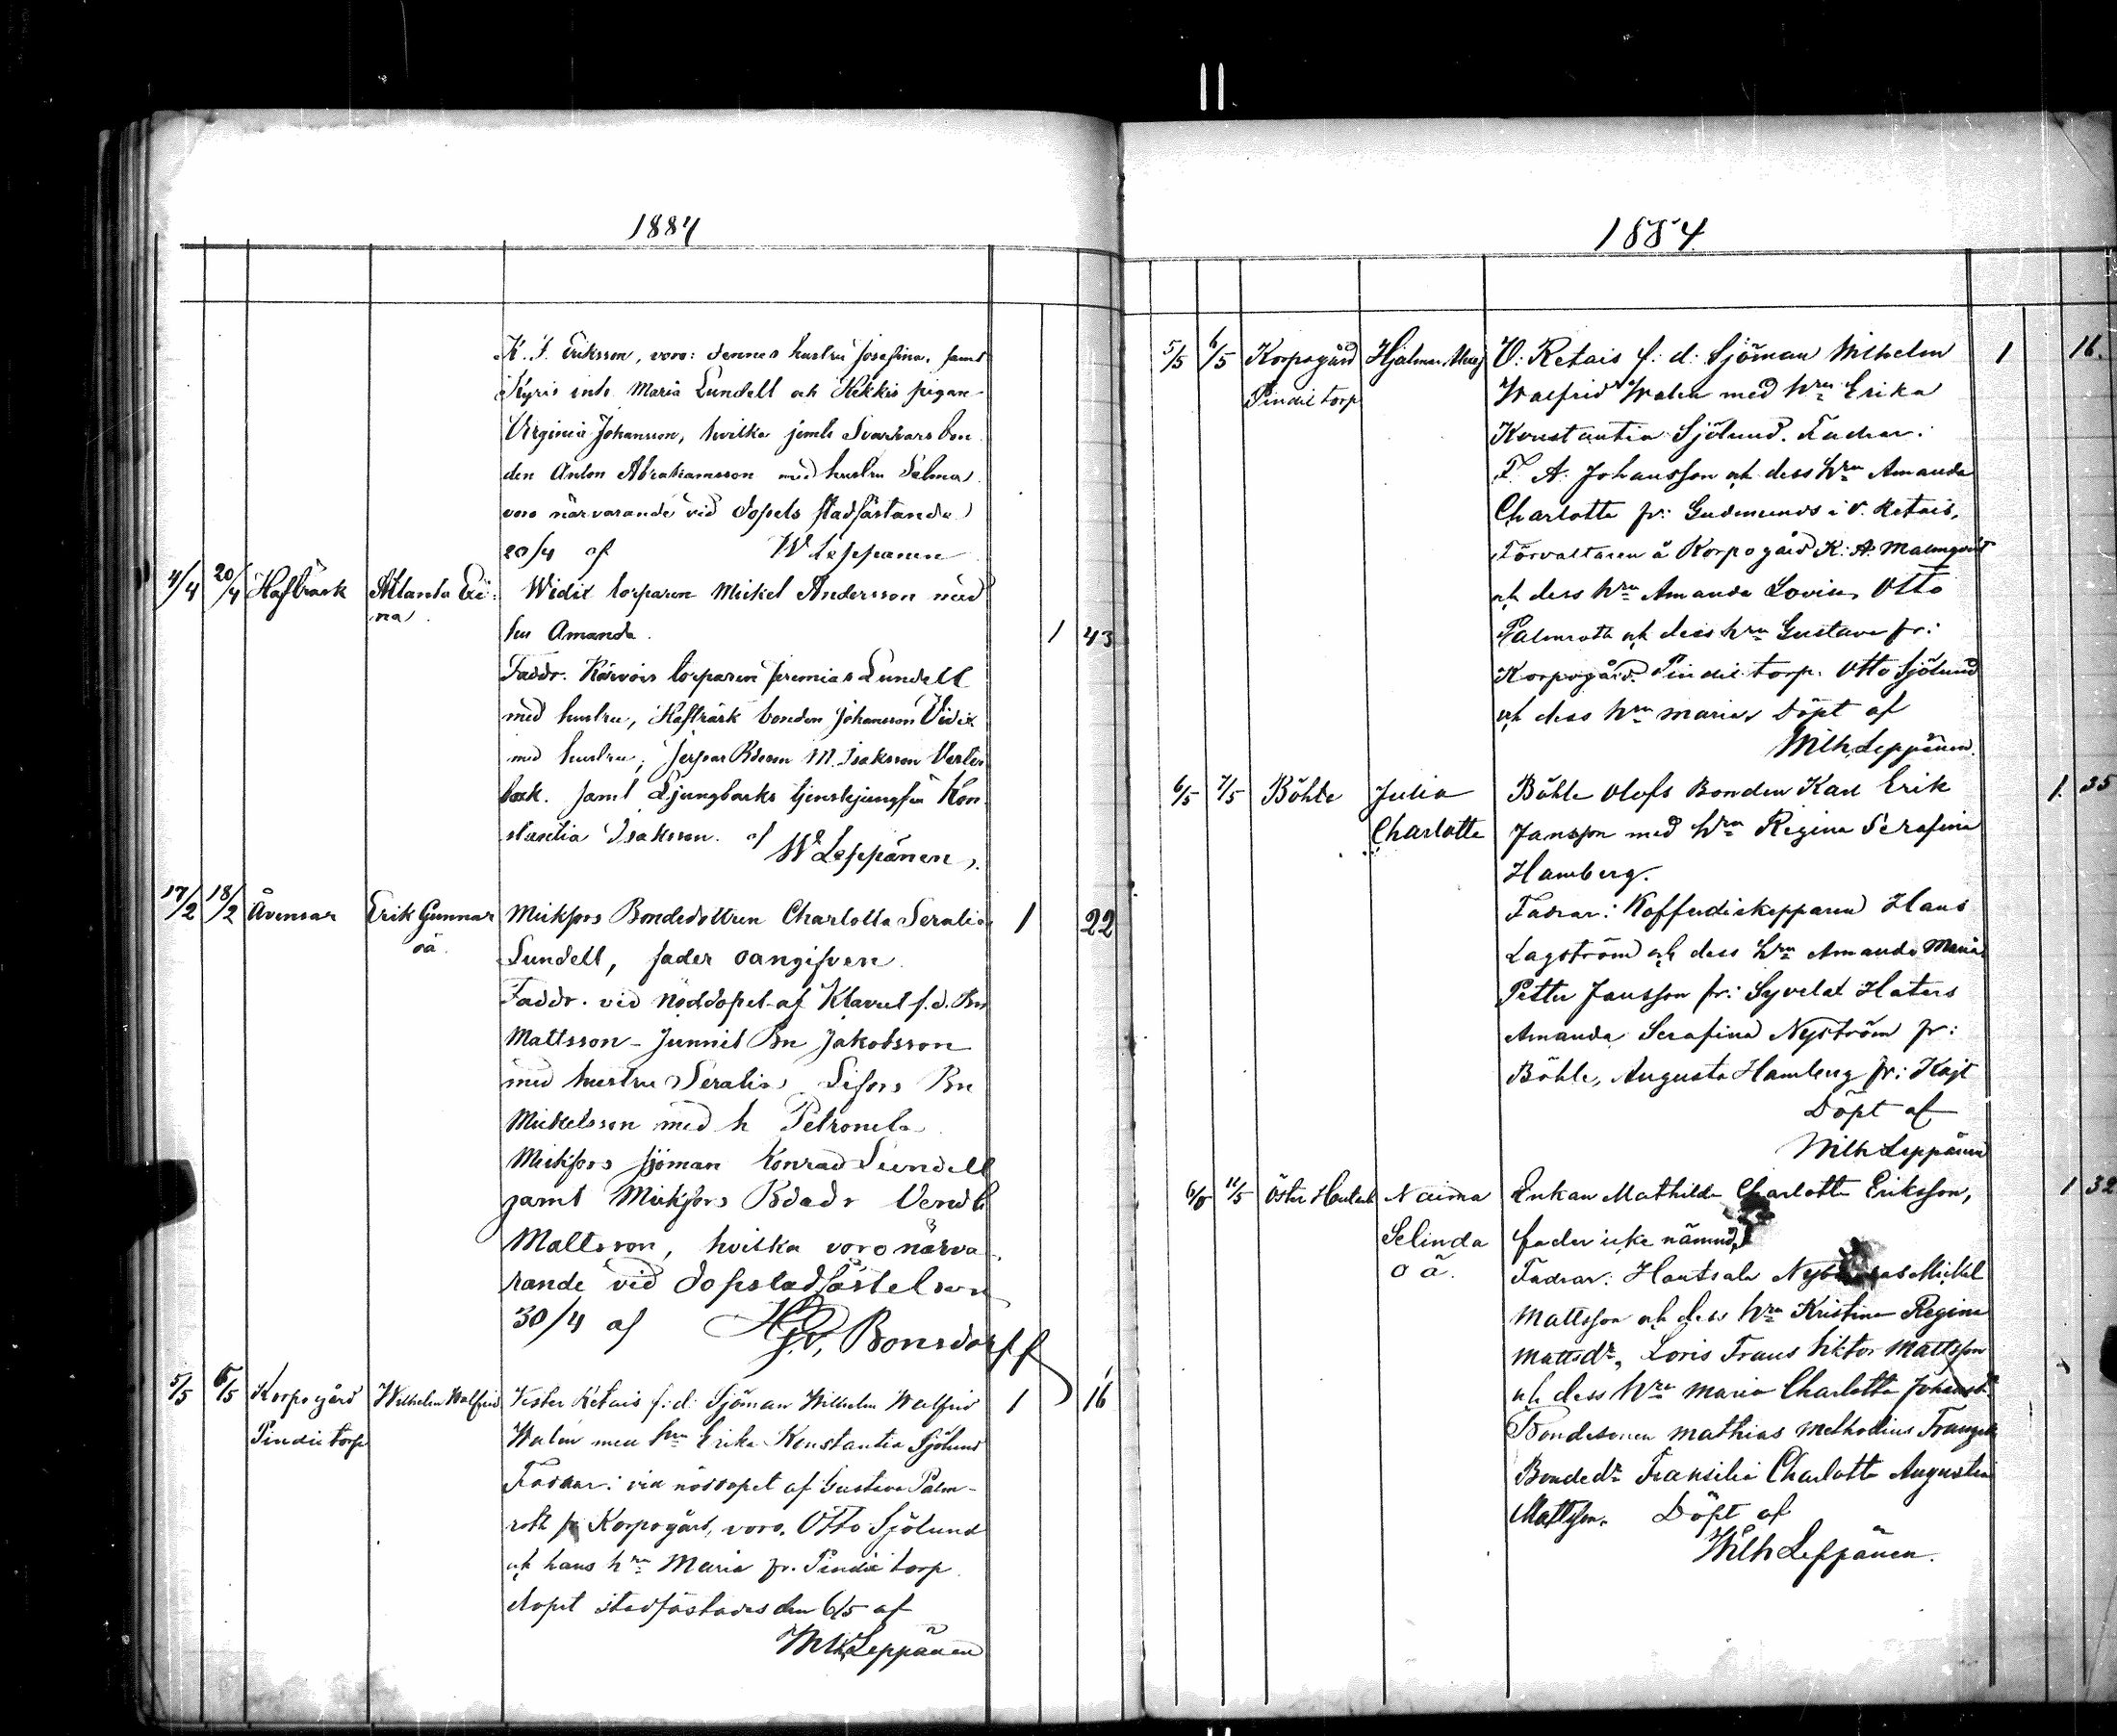 1884
K. J. Eriksson, voro: dennes hustru Josefina, samt
Kyris inh. Maria Lundell och Hekkis pigan
Virginia Johansson, hvilka jemte Svarvars bon
den Anton Abrahamsson med hustru Selma
voro närvarande vid dopets stadfästande
20/4 af W Leppänen
4/4 20/4 Hafträsk Atlanta Eri- Widix torparen Mickel Andersson med
na hu Amanda. 1 43
Faddr. torparen Jeremias Lundell
med hustru, Hafträsk bonden Johansson Vidix
med hustru, M. Isaksson Vester
bock. samt Ljungbacks tjenstejungfru Kon
stantia Isaksson. af
W Leppänen.
17/2 18/2 Åvensar Erik Gunnar Mickfors Bondedottren Charlotta Seralia 1 22
oä. Lundell, fader oangifven
Faddr. vid nöddopet af Klavus f.d. Bn
Mattsson - Junnil Bn Jakobsson
med hustru Seralia Sifors Bn
Mickelsson med h Petronela
Mickfors sjöman Konrad Lundell
samt Mickfors Bdadr Vendla
Mattsson, hvilka voro närva
rande vid dopstadfästelsen
30/4 af H. G. v. Bonsdorff
5/5 6/5 Korpogård Wilhelm Walfrid Vester Retais f: d: Sjöman Wilhelm Walfrid 1 16
Pindii torp Walen med hru Erika Konstantia Sjölund
Faddrar: vid nöddopet af Gustava Palm-
roth fr Korpogård, voro. Otto Sjölund
och hans hru Maria fr. Pindii torp.
dopet stadfästades den 6/5 af
Wilh Leppänen
1884.
5/5 6/5 Korpogård Hjalmar V: Retais f: d: Sjöman Wilhelm 1 16.
Pindii torp Walfrid Walen med hru Erika
Konstantia Sjölund. Fadrar:
F. A. Johansson och dess hru Amanda
Charlotta fr: Gudmunds i V. Retais,
Förvaltaren å Korpogård K: A. Malmqvist
och dess hru Amanda Lovisa, Otto
Palmroth och dess hru Gustava fr:
Korpogård. Pindii torp. Otto Sjölund
och dess hru Maria. Döpt af
Wilh. Leppänen.
6/5 7/5 Böhle Julia Böhle Olofs Bonden Karl Erik 1. 35
Charlotta Jansson med hru Regina Serafina
Hamberg.
Fadrar: Kofferdiskepparen Hans
Lagström och dess hru Amanda Maria
Petter Jansson fr: Syvelax Haters
Amanda Serafina Nyström fr:
Böhle, Augusta Hamberg fr: Kajt
Döpt af
Wilh Leppänen
6/5 11/5 Öster Naima Enkan Mathilda Charlotta Eriksson, 1 32
Selinda fader icke nämnd,
o ä. Fadrar: Houtsala Mickel
Mattsson och dess hru Kristina Regina
Mattsdr, Loris Frans Viktor Mattsson
och dess hru Maria Charlotta Johansdr
Bondesonen Mathias Methodius
Bondedr Fransilia Charlotta Augustin
Mattsson. Döpt af
Wilh Leppänen.